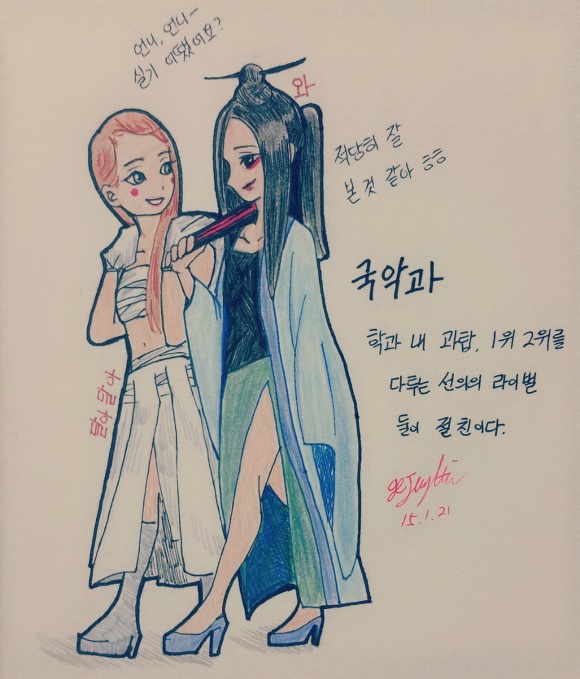 언니, 언니~
실기 어땠어요?
와
적당히 잘
본 것 같아 ㅎㅎ
국악과
학과 내 과탑, 1위 2위를
다투는 선의의 라이벌
둘이 절친이다.
15.1.21